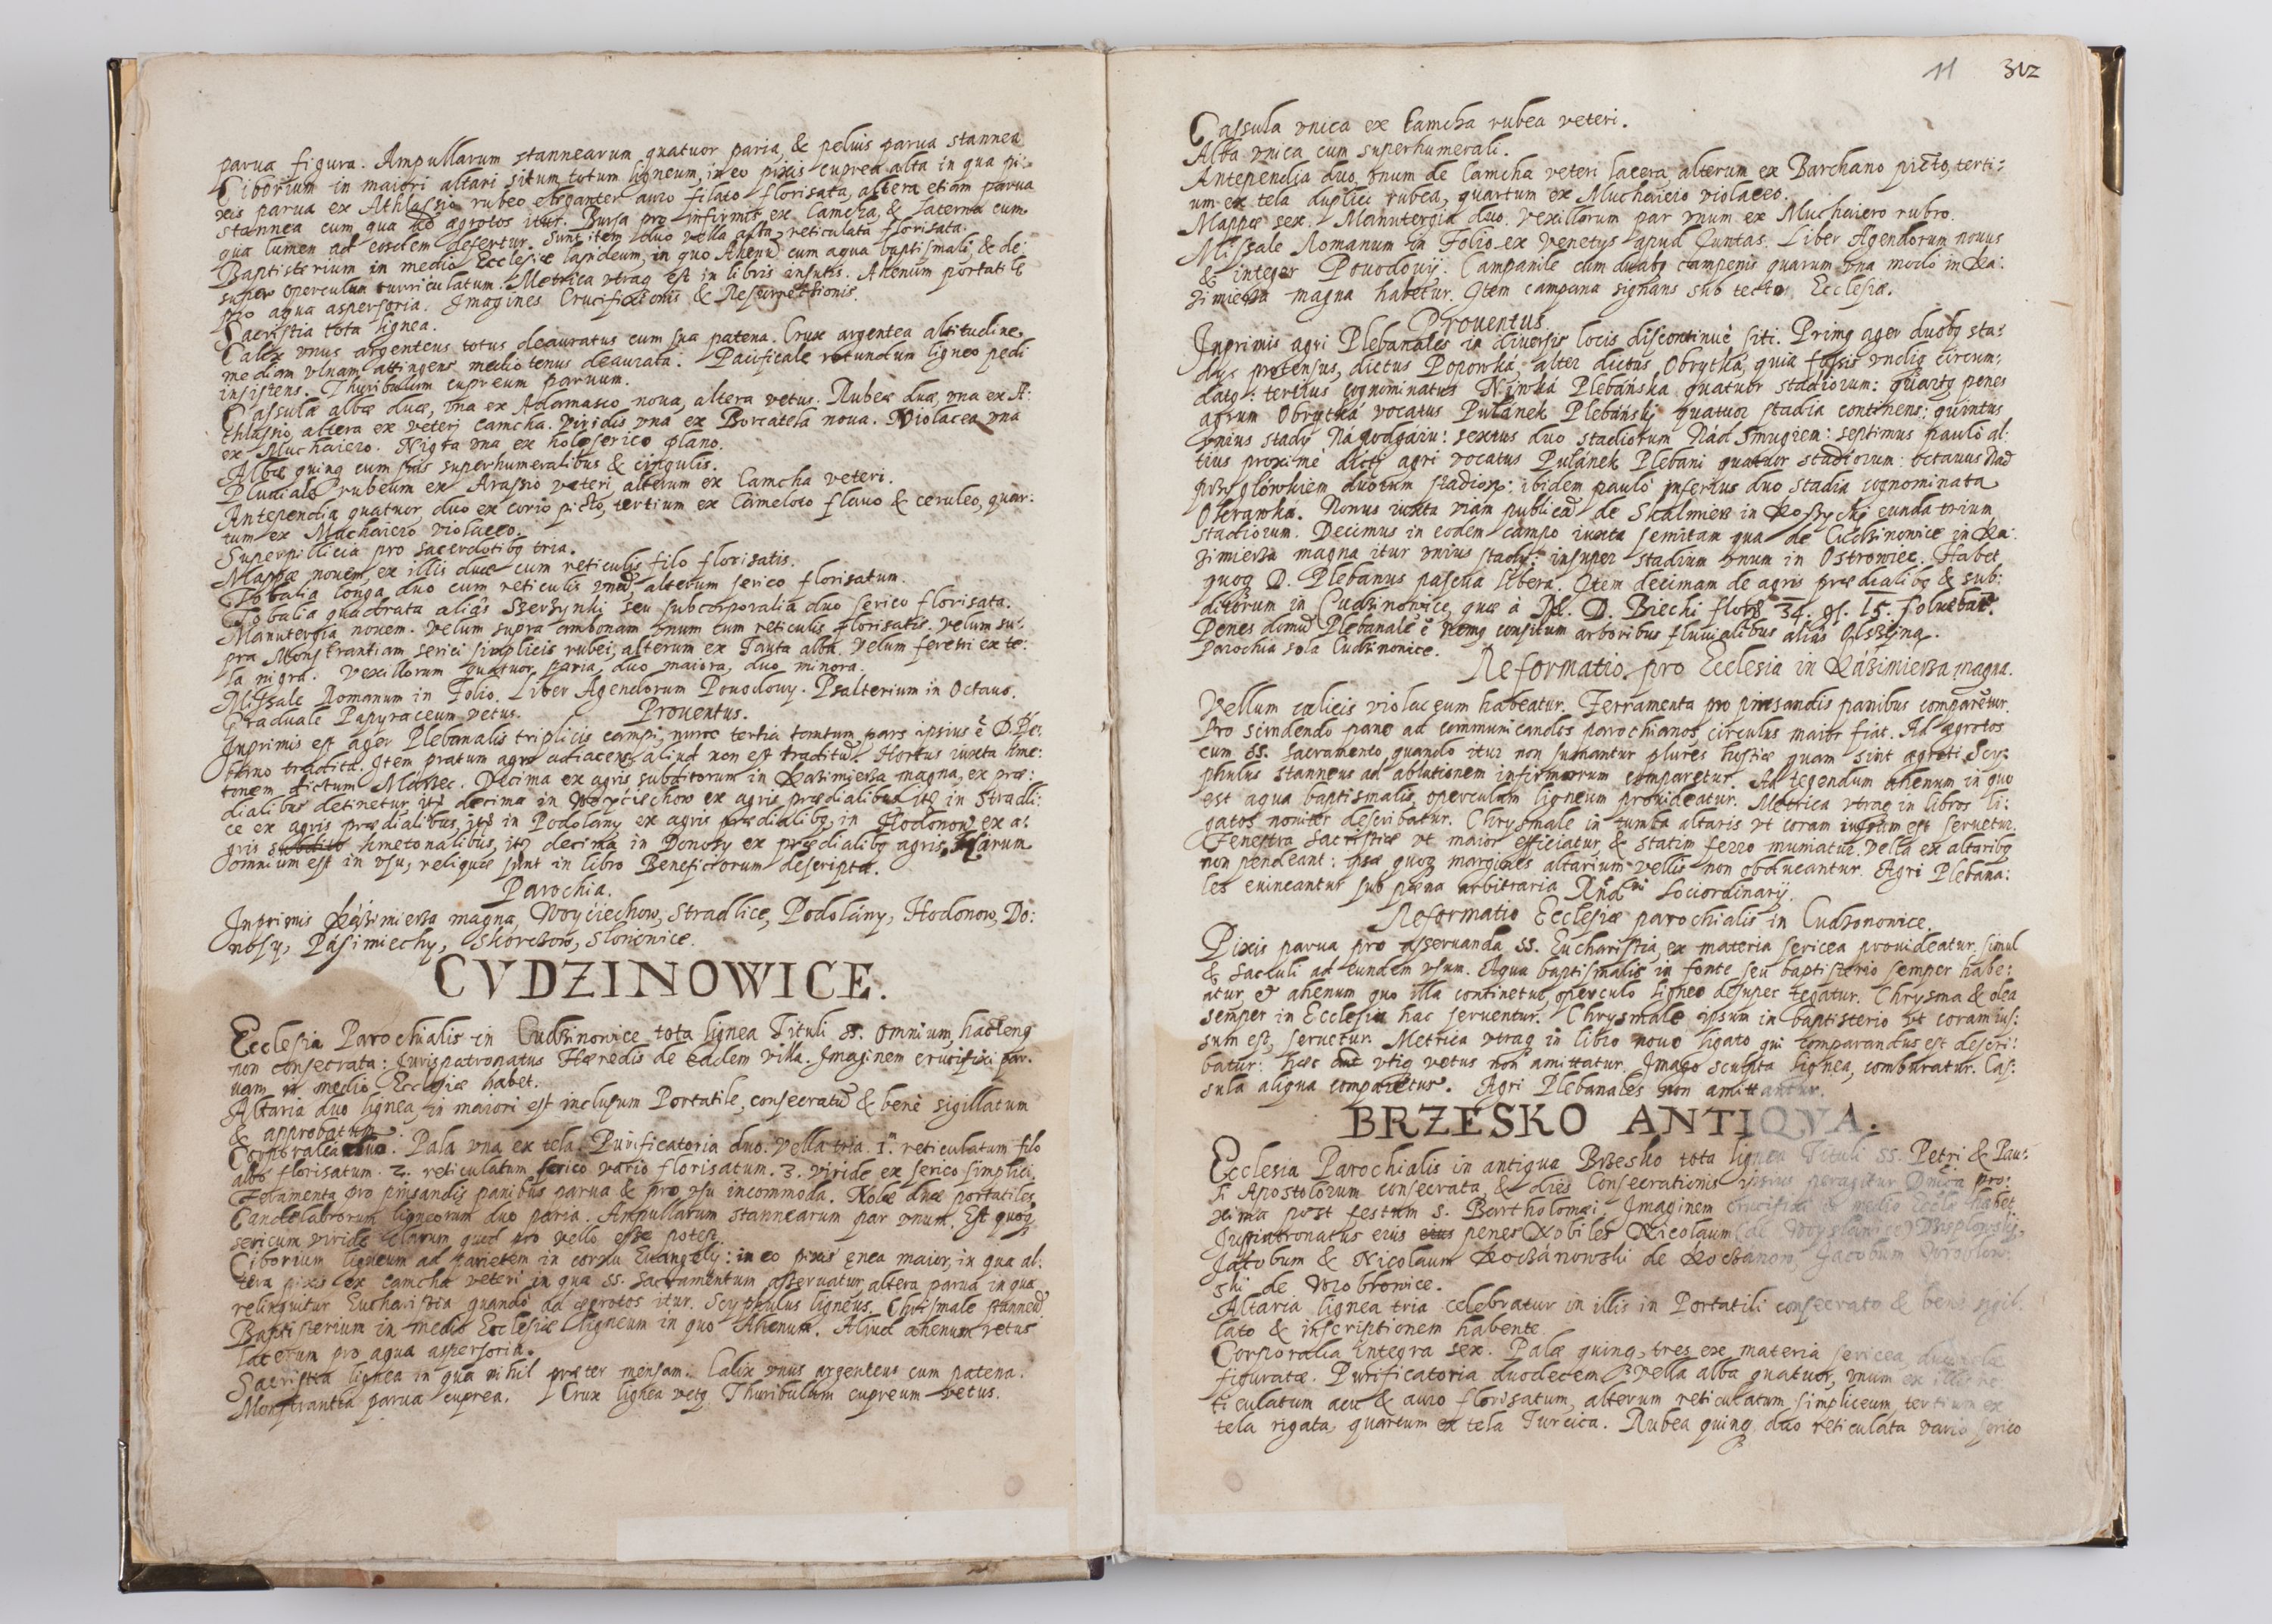 parua figura. Ampullarum stannearum quatuor paria, & peluis parua stannea
Ciborium in maiori altari situm totum ligneum, in eo pixis cuprea alta in qua pi:
xis parua ex Athlassio rubeo eleganter auro filato florisata, altera etiam parua
stannea cum qua ad ægrotos itur. Bursa pro infirmis ex Camcha, & laterna cum
qua lumen ad eosdem defertur. Sunt item duo vella alta reticulata florisata.
Baptisterium in medio Ecclesiæ lapideum, in quo Ahenũ cum aqua baptismali, & de:
super operculum turriculatum. Metrica vtraq est in libris insutis. Ahenum portatile
pro aqua aspersoria. Imagines Crucifixionis & Resurrectionis.
Sacristia tota lignea.
Calix vnus argenteus totus deauratus cum sua patena. Crux argentea altitudine
mediam vlnam attingens medio tenus deaurata. Pacificale rotundum ligneo pedi
insistens. Thuribulum cupreum paruum.
Casulæ albæ duæ, vna ex Adamasco noua, altera vetus. Rubeæ duæ, vna ex A:
thlassio, altera ex veteri camcha. Viridis vna ex Borcatela noua. Violacea vna
ex Muchaiero. Nigra vna ex holoserico plano.
Albæ quinq cum suis superhumeralibus & cingulis.
Pluuiale rubeum ex Arassio veteri, alterum ex Camcha veteri.
Antependia quatuor, duo ex corio picto, tertium ex Cameloto flauo & ceruleo, quar:
tum ex Muchaiero violaceo.
Superpillicia pro sacerdotibq tria.
Mappæ nouem, ex illis duæ cum reticulis filo florisatis.
Tobalia longa duo cum reticulis vnũ, alterum serico florisatum.
Tobalia quadrata aliàs Szerzynki seu subcorporalia duo serico florisata.
Manutergia nouem. Velum supra ambonam vnum cum reticulis florisatis. Velum su:
pra Monstrantiam serici simplicis rubei, alterum ex Tauta alba. Velum feretri ex te:
la nigra. Vexillorum quatuor paria, duo maiora, duo minora.
Missale Romanum in Folio. Liber Agendorum Pouodouy. Psalterium in Octauo.
Graduale Papyraceum vetus.
Prouentus.
Inprimis est ager Plebanalis triplicis campi, nunc tertia tantum pars ipsius è D. Ple:
bano tradita. Item pratum agro adiacens, aliud non est traditũ. Hortus iuxta Kme:
tonem dictum Marzec. Decima ex agris subditorum in Kazimierza magna, ex præ:
dialibus detinetur, itẽ decima in Woyćiechow ex agris prædialibus, itẽ in Stradli:
ce ex agris prædialibus, itẽ in Podolany ex agris prædialibq, in Hodonow ex a:
gris kmetonalibus, itẽ decima in Donosy ex prædialibq agris. Harum
omnium est in vsu, reliquæ sunt in libro Beneficiorum descriptæ.
Parochia.
Inprimis Káźimierza magna, Woyćiechow, Stradlice, Podolány, Hodonow, Do:
nosy, Páśimiechy, Skorczow, Slonienice.
CVDZINOWICE.
Ecclesia Parochialis in Cudzinowice tota lignea Tituli SS. Omnium, hactenq
non consecrata: Iurispatronatus Hæredis de eadem villa. Imaginem crucifixi par:
uam in medio Ecclesiæ habet.
Altaria duo lignea, in maiori est inclusum Portatile, consecratũ & benè sigillatum
& approbatum.
Corporalia duo. Pala vna ex tela. Purificatoria duo. Vella tria. 1m reticulatum filo
albo florisatum. 2. reticulatum serico vario florisatum. 3. viride ex serico simplici.
Ferramenta pro pinsandis panibus parua & pro vsu incommoda. Nolæ duæ portatiles.
Candelabrorum ligneorum duo paria. Ampullarum stannearum par vnum. Est quoq
sericum viride clarum quod pro vello esse potest.
Ciborium ligneum ad parietem in cornu Euangelij: in eo pixis ęnea maior, in qua al:
tera pixis ex camcha veteri in qua SS. Sacramentum asseruatur, altera parua in qua
relinquitur Eucharistia quando ad ægrotos itur. Scyphulus ligneus. Chrismale stanneũ
Baptisterium in medio Ecclesiæ ligneum in quo Ahenum. Aliud ahenum vetus
laterum pro aqua aspersoria.
Sacristia lignea in qua nihil præter mensam. Calix vnus argenteus cum patena.
Monstrantia parua cuprea. Crux lignea vetq. Thuribulum cupreum vetus.
11 312
Cassula vnica ex Camcha rubea veteri.
Alba vnica cum superhumerali.
Antependia duo, vnum de Camcha veteri lacera, alterum ex Barchano picto, terti:
um ex tela duplici rubea, quartum ex Muchaiero violaceo.
Mappæ sex. Manutergia duo. Vexillorum par vnum ex Muchaiero rubro.
Missale Romanum in Folio ex Venetys apud Iuntas. Liber Agendorum nouus
& integer Pouodouij. Campanile cum duabq campanis quarum vna modò in Ka:
zimierza magna habetur. Item campana signans sub tecto Ecclesiæ.
Prouentus.
Inprimis agri Plebanales in diuersis locis discontinuè siti. Primq ager duobq sta:
dijs protensus, dictus Popowká, alter dictus Obrytká, quia fossis vndiq circum:
datq: tertius cognominatus Niwká Plebáńska quatuor stadiorum: quartq penes
agrum Obrytká vocatus Pułánek Plebáński quatuor stadia continens: quintus
vnius stadij Ná podgáiu: sextus duo stadiorum Nád Smugiem: septimus paulò al:
tius proximè dicti agri vocatus Pułánek Plebani quatuor stadiorum: octauus Nad
duorum stadiorũ: ibidem paulò inferius duo stadia cognominata
Nonus iuxta viam publicã de Skalmierz in Koszyckj eunda trium
stadiorum. Decimus in eodem campo iuxta semitam qua de Cudzinowice in Ka:
zimierza magna itur vnius stadij: insuper stadium vnum in Ostrowiec. Habet
quoq D. Plebanus pascua libera. Item decimam de agris prædialibq & sub:
ditorum in Cudzinowice, quæ à M. D. Biechi flor. 34. gr. 15. soluebat.
Penes domũ Plebanalẽ ẽ Nemq consitum arboribus fluuialibus aliàs Olszyna.
Parochia sola Cudzinowice.
Reformatio pro Ecclesia in Kázimierza magna.
Vellum calicis violaceum habeatur. Ferramenta pro pinsandis panibus comparẽtur.
Pro scindendo pane ad communicandos parochianos circulus maior fiat. Ad ægrotos
cum SS. Sacramento, quando itur non sumantur plures hostiæ quam sint ægroti. Scy:
phulus stanneus ad ablutionem infirmorum comparetur. Ad tegendum ahenum in quo
est aqua baptismalis, operculum ligneum prouideatur. Metrica vtraq in libros li:
gatos nouiter describatur. Chrysmale in tumba altaris vt coram iussum est seruetur.
Fenestra Sacristiæ vt maior efficiatur, & statim ferro muniatur. Vella ex altaribq
non pendeant: ipsæ quoq margines altarium vellis non obducantur. Agri Plebana:
les euincantur sub pæna arbitraria Rndmi Lociordinarij.
Reformatio Ecclesiæ parochialis in Cudzonowice.
Pixis parua pro asseruanda SS. Eucharistia, ex materia sericea prouideatur, simul
& sacculi ad eundem vsum. Aqua baptismalis in fonte seu baptisterio semper habe:
atur, & ahenum quo illa continetur, operculo ligneo desuper tegatur. Chrysma & olea
semper in Ecclesia hac seruentur. Chrysmale ipsum in baptisterio vt coram ius:
sum est, seruetur. Metrica vtraq in libro nouo ligato qui comparandus est descri:
batur: vtiq vetus non amittatur. Imago sculpta lignea, comburatur. Cas:
sula aliqua comparetur. Agri Plebanales non amittantur.
BRZESKO ANTIQVA.
Ecclesia Parochialis in antiqua Brzesko tota lignea Tituli SS. Petri & Pau:
li Apostolorum consecrata, & dies Consecrationis ipsius peragitur Dnica pro:
xima post festum S. Bartholomæi, Imaginem crucifixi in medio Eccle habet
Iurispatronatus eius penes Nobiles Nicolaum
Jacobum & Nicolaum Koczánowski de Koczánow, Jacobum Wroblow:
ski de Wrobłowice.
Altaria lignea tria celebratur in illis in Portatili consecrato & benè sigil:
lato & inscriptionem habente.
Corporalia integra sex. Palæ quinq, tres ex materia sericea,
figuratæ. Purificatoria duodecem Vella alba quatuor, vnum ex illis re:
ticulatum acu & auro florisatum, alterum reticulatum simpliceum, tertium ex
tela rigata, quartum ex tela Turcica. Rubea quinq, duo reticulata vario serico